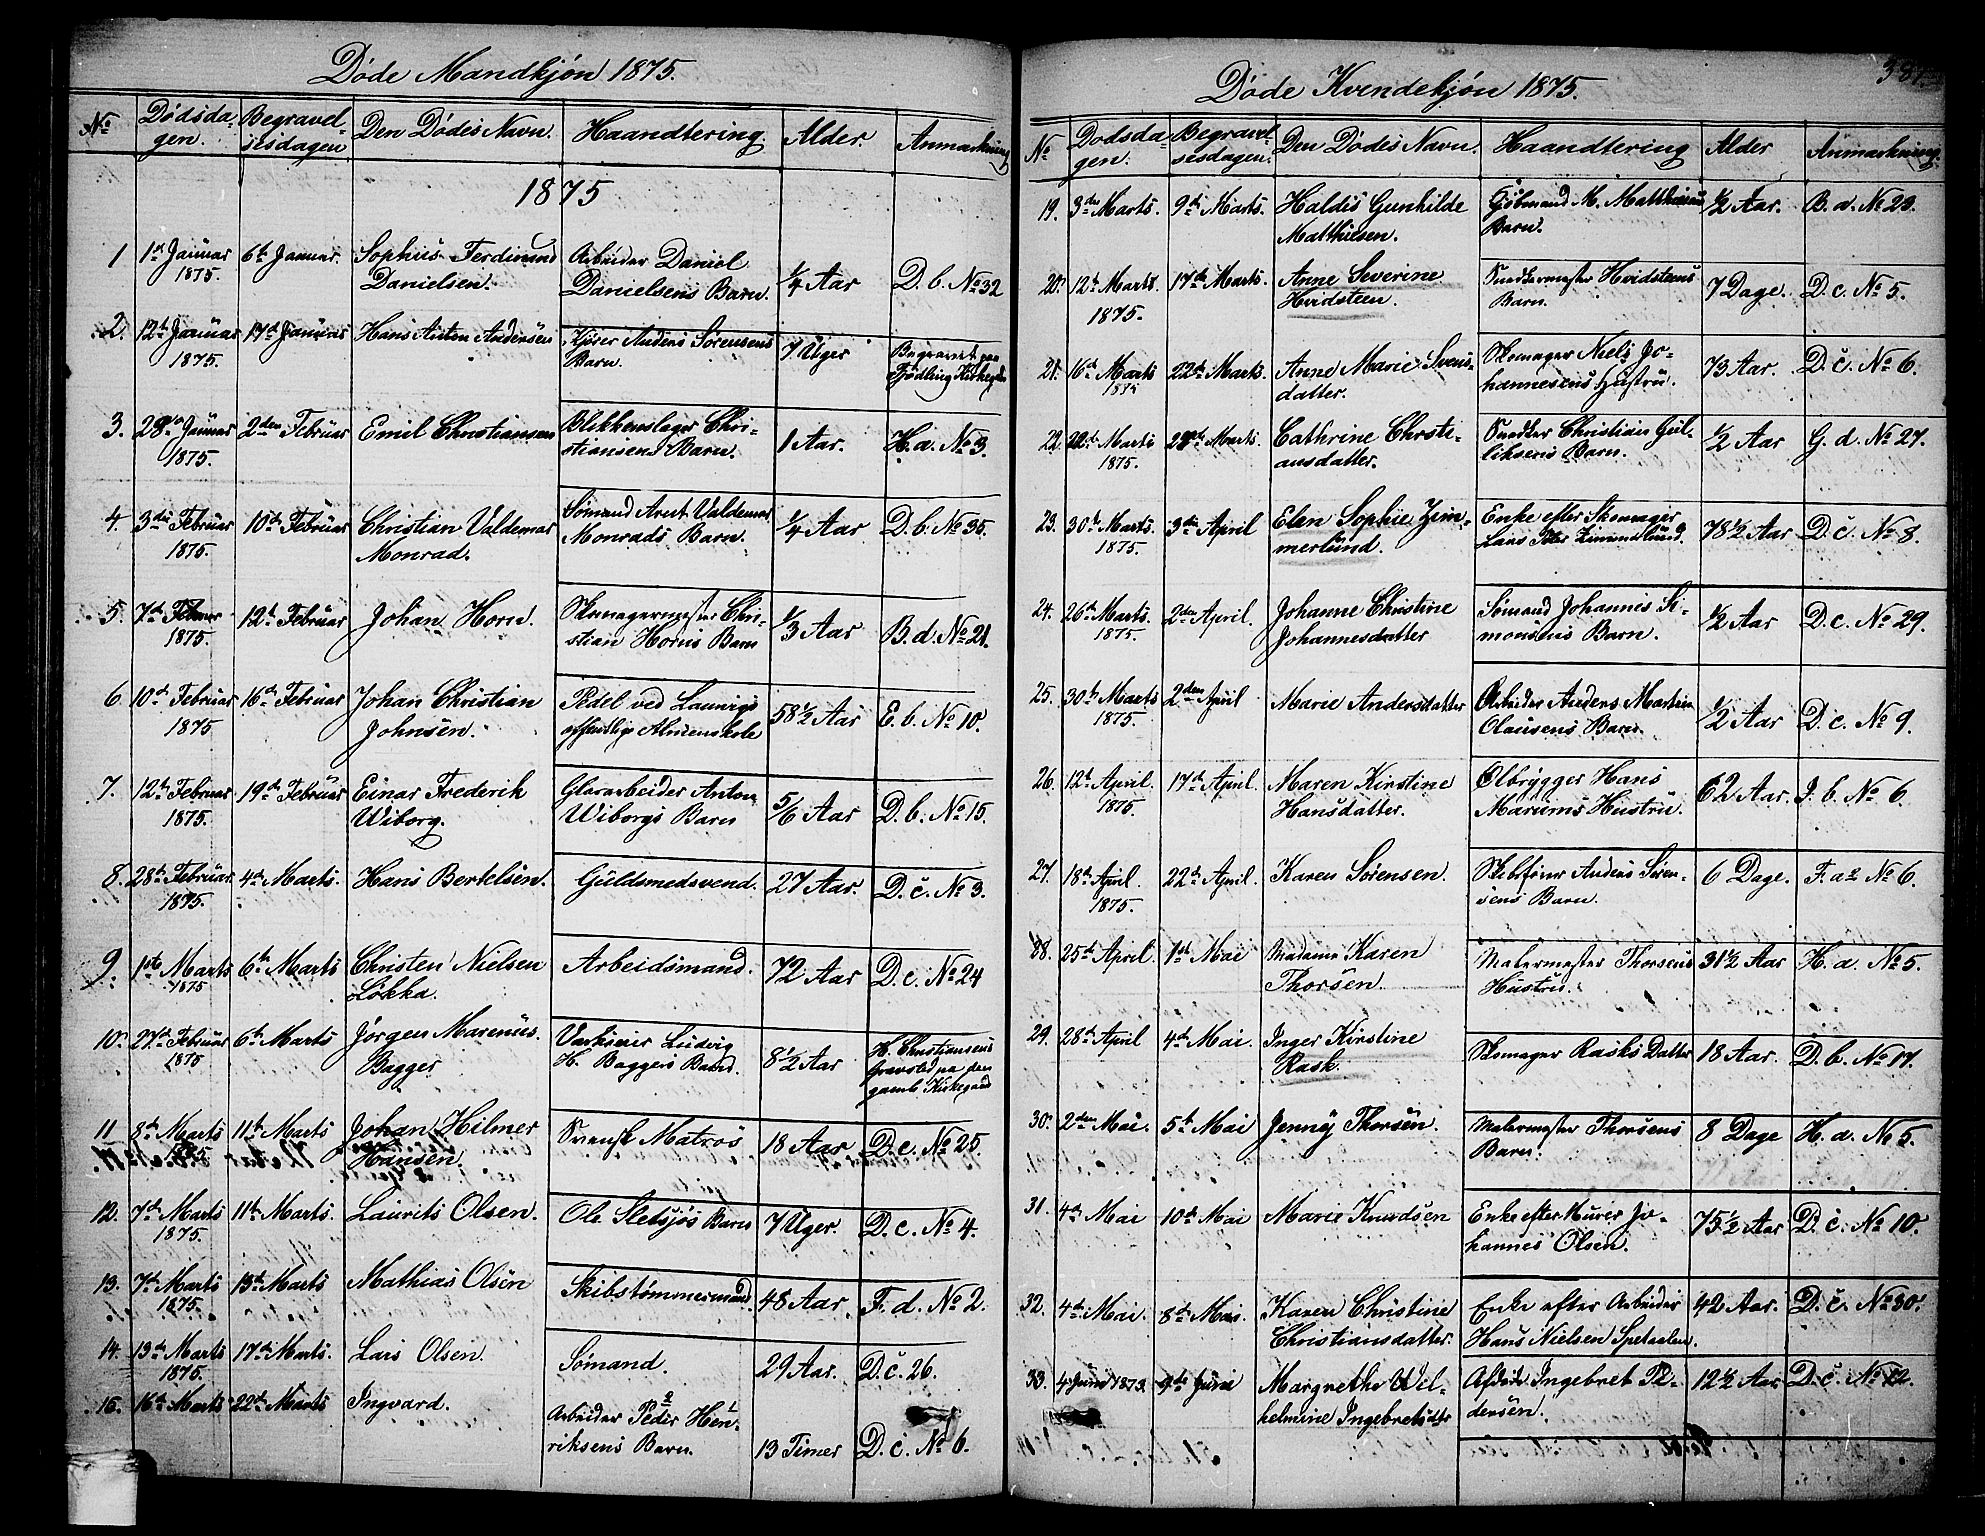 Døde Mandkjøn 1875.
No Dødsdagen. Begravelsesdagen Den Dødes Navn. Haandtering Alder. Anmærkning
1875
1 1ste Januar 1875. 6te Januar. Sophus Ferdinand Danielsen. Arbeider Daniel Danielsens Barn. 1/4 Aar D. b. No 32
2. 12te Januar 1875. 17de Januar Hans Anton Andersen Kjører Anders Sørensens Barn. 7 Uger Begravet paa Tjødling Kirkegd
3. 28de Januar 1875. 2den Februar Emil Christiansen Blikkenslager Christiansens Barn. 1 Aar. H. a. No 3.
4. 3die Februar 1875. 10de Februar Christian Valdemar Monrad. Sømand Arnt Valdemar Monrads Barn. 1/4 Aar D. b. No 35.
5. 7de Februar 1875. 12te Februar Johan Horn. Skomagermester Christian Horns Barn 1/3 Aar B. d. No 21.
6. 10de Februar 1875 16de Februar Johan Christian Johnsen. Pedel ved Laurvigs offentlige Almenskole 58 1/2 Aar E. b. No 10.
7. 12te Februar 1875. 19de Februar Einar Frederik Wiborg. Glasarbeider Anton Wiborgs Barn 5/6 Aar D. b. No 15.
8. 28de Februar 1875. 4de Marts. Hans Bertelsen. Guldsmedsvend. 27 Aar. D. c. No 3.
9. 1ste Marts 1875 6te Marts Christen Nielsen Løkka. Arbeidsmand. 72 Aar D. c. No 24
10. 27de Februar 1875 6te Marts Jørgen Marenus Bagger Værkseier Ludvig H. Baggers Barn. 8 1/2 Aar H. Christiansens Gravsted paa den gamle Kirkegaard
11 8de Marts 1875. 11te Marts Johan Hilmer Hansen. Svensk Matros 18 Aar D. c. No 25.
12. 7de Marts 1875. 11te Marts. Laurits Olsen. Ole Sletsjøs Barn 7 Uger. D. c. No 4.
13. 7de Marts 1875. 13de Marts Mathias Olsen Skibstømmermand 48 Aar. F. d. No 2.
14. 13de Marts 1875. 17de Marts. Lars Olsen. Sømand. 29 Aar. D. c. 26.
15. 16de Marts 22de Marts Ingvard. Arbeider Peder Henriksens Barn. 13 Timer D. c. No 6.
Døde Kvindekjøn 1875.
No Dødsdagen. Begravelsesdagen. Den Dødes Navn. Haandtering Alder Anmærkning.
19. 3die Marts. 9de Marts. Haldis Gunhilde Matthisen. Kjøbmand M. Matthisens Barn. 1/2 Aar. B. a. No 23.
20. 12te Marts. 1875. 17de Marts. Anne Severine Hvidsteen. Snedkermester Hvidsteens Barn. 7 Dage. D. c. No 5.
21. 16de Marts 1875 22de Marts. Anne Marie Svensdatter. Skomager Niels Johannesens Hustru. 73 Aar. D. c. No 6.
22. 22de Marts 1875. Marts. Cathrine Christiansdatter. Snedker Christian Gulliksens Barn. 1/2 Aar G. d. No 27.
23. 30te Marts. 1875. 3die April Elen Sophie Zimmerlund. Enke efter Skomager Lars Peter Zimmerlund. 78 1/2 Aar D. c. No 8.
24. 26de Marts. 1875. 2den April. Johanne Christine Johannesdatter Sømand Johannes Simonsens Barn. 1/2 Aar D. c. No 29.
25. 30te Marts 1875. 2den April Marie Andersdatter Arbeider Anders Martin Olausens Barn. 1/2 Aar D. c. No 9.
26. 12te April. 1875. 17de April. Maren Kirstine Hansdatter. Ølbrygger Hans Marums Hustru 62 Aar. J. b. No 6.
27. 18de April. 1875. 22de April. Karen Sørensen. Skibsfører Anders Sørensens Barn. 6 Dage. F. a2 No 6.
28. 25de April. 1ste Mai Madame Karen Thorsen. Malermester Thorsens Hustru. 31 1/2 Aar H. a. No 5.
29. 28de April 4de Mai. Inger Kirstine Rask. Skomager Rasks Datter 18 Aar. D. b. No 17.
30. 2den Mai. 5te Mai Jenny Thorsen. Malermester Thorsens Barn. 8 Dage H. a. No 5.
31. 4de Mai 10de Mai Marie Knudsen Enke efter Murer Johannes Olsen. 75 1/2 Aar D. c. No 10.
32. 4de Mai. 8de Mai. Karen Christine Christiansdatter. Enke efter Arbeider Hans Nielsen Spetaalen. 42 Aar. D. c. No 30.
33. 4 Juni 1873. 9de Juni Margrethe Wilhelmine Ingebretsdtr Afdøde Ingebret Pedersen. 12 1/2 Aar D. c. No 12.